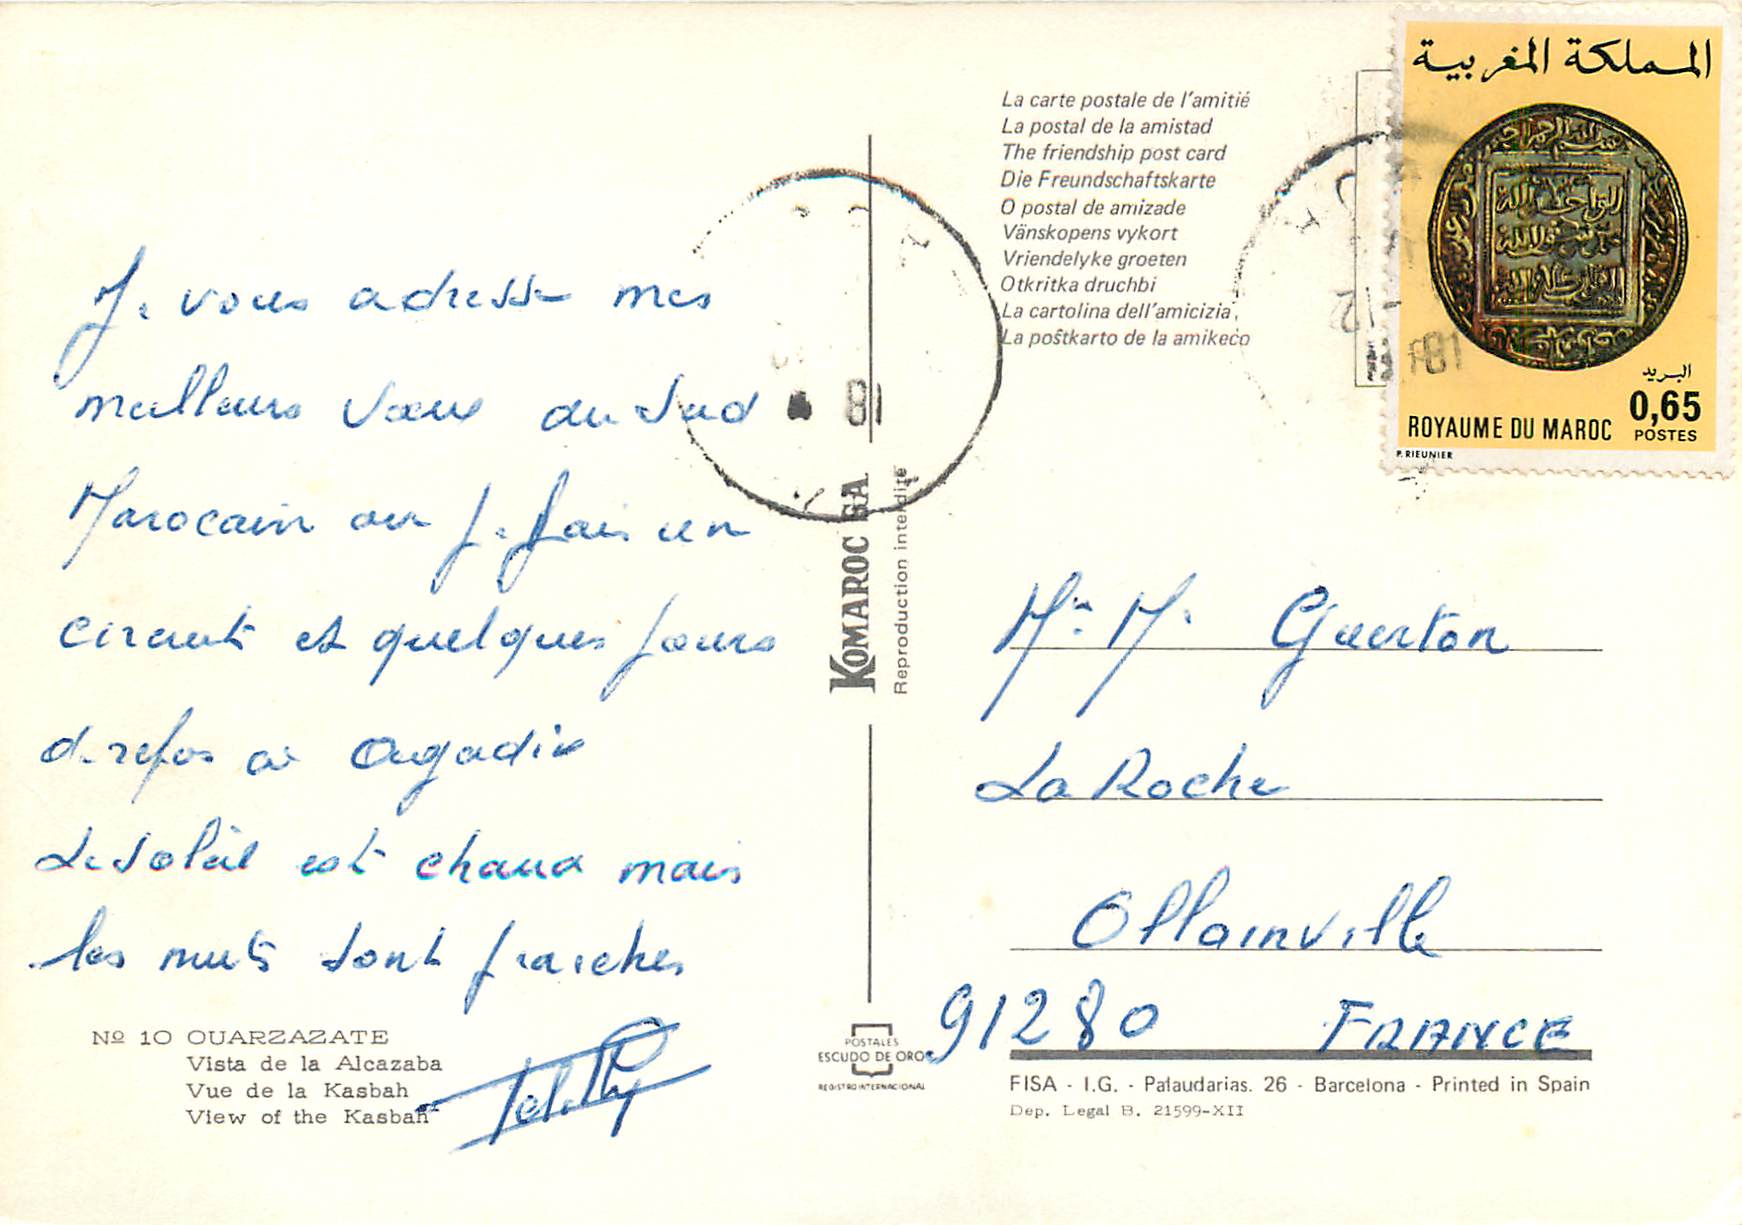 Je vous adresse mes
meilleurs vœux du Sud
Marocain où je fais un
circuit et quelques jours
de repos à Agadir
Le soleil est chaud mais
les nuits sont fraiches
Nº 10 OUARZAZATE
Vista de la Alcazaba
Vue de la Kasbah
View of the Kasbah
81
KOMAROC SA
Reproduction interdite
POSTALES
ESCUDO DE ORO
REGISTRO INTERNACIONAL
La carte postale de l'amitié
La postal de la amistad
The friendship post card
Die Freundschaftskarte
O postal de amizade
Vänskopens vykort
Vriendelyke groeten
Otkritka druchbi
La cartolina dell'amicizia
La poŝtkarto de la amikeco
المملكة المغربية
البريد
0,65
ROYAUME DU MAROC POSTES
P. RIEUNIER
81
Mr. M. Guerton
La Roche
Ollainville
91280 FRANCE
FISA - I.G. - Palaudarias. 26 - Barcelona - Printed in Spain
Dep. Legal B. 21599-XII